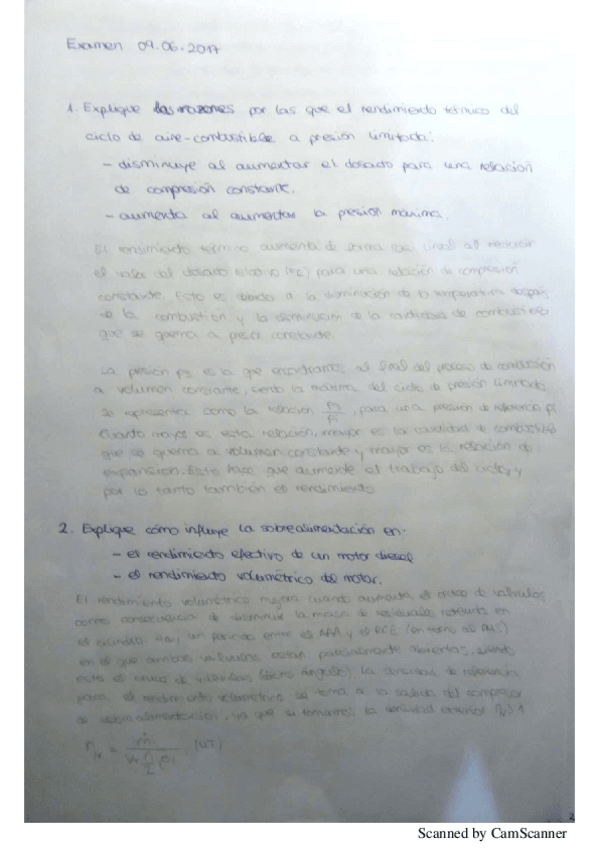 Examen 09.06.2017
1. Explique las razones por las que el rendimiento térmico del
ciclo de aire-combustible a presión limitada:
- disminuye al aumentar el dosado para una relación
de compresión constante.
- aumenta al aumentar la presión máxima.
El rendimiento térmico aumenta de forma casi lineal al reducir
el valor del dosado relativo (FR) para una relación de compresión
constante. Esto es debido a la disminución de la temperatura después
de la combustión y la disminución de la cantidad de combustible
que se quema a presión constante.
La presión p3 es la que encontramos al final del proceso de combustión
a volumen constante, siendo la máxima del ciclo de presión limitada
se representa como la relación , para una presión de referencia p1
Cuanto mayor es esta relación, mayor es la cantidad de combustible
que se quema a volumen constante y mayor es la relación de
expansión. Esto hace que aumente el trabajo del ciclo, y
por lo tanto también el rendimiento
2. Explique cómo influye la sobrealimentación en:
- el rendimiento efectivo de un motor diesel
- el rendimiento volumétrico del motor.
El rendimiento volumétrico mejora cuando aumenta el cruce de válvulas
como consecuencia de disminuir la masa de residuales retenida en
el cilindro. Hay un periodo entre el AAA y el RCE (en torno al PMS)
en el que ambas válvulas están parcialmente abiertas, siendo
este el cruce de válvulas (ángulo). La densidad de referencia
para el rendimiento volumétrico se toma a la salida del compresor
de sobrealimentación, ya que si tomamos la densidad exterior
2
Scanned by CamScanner